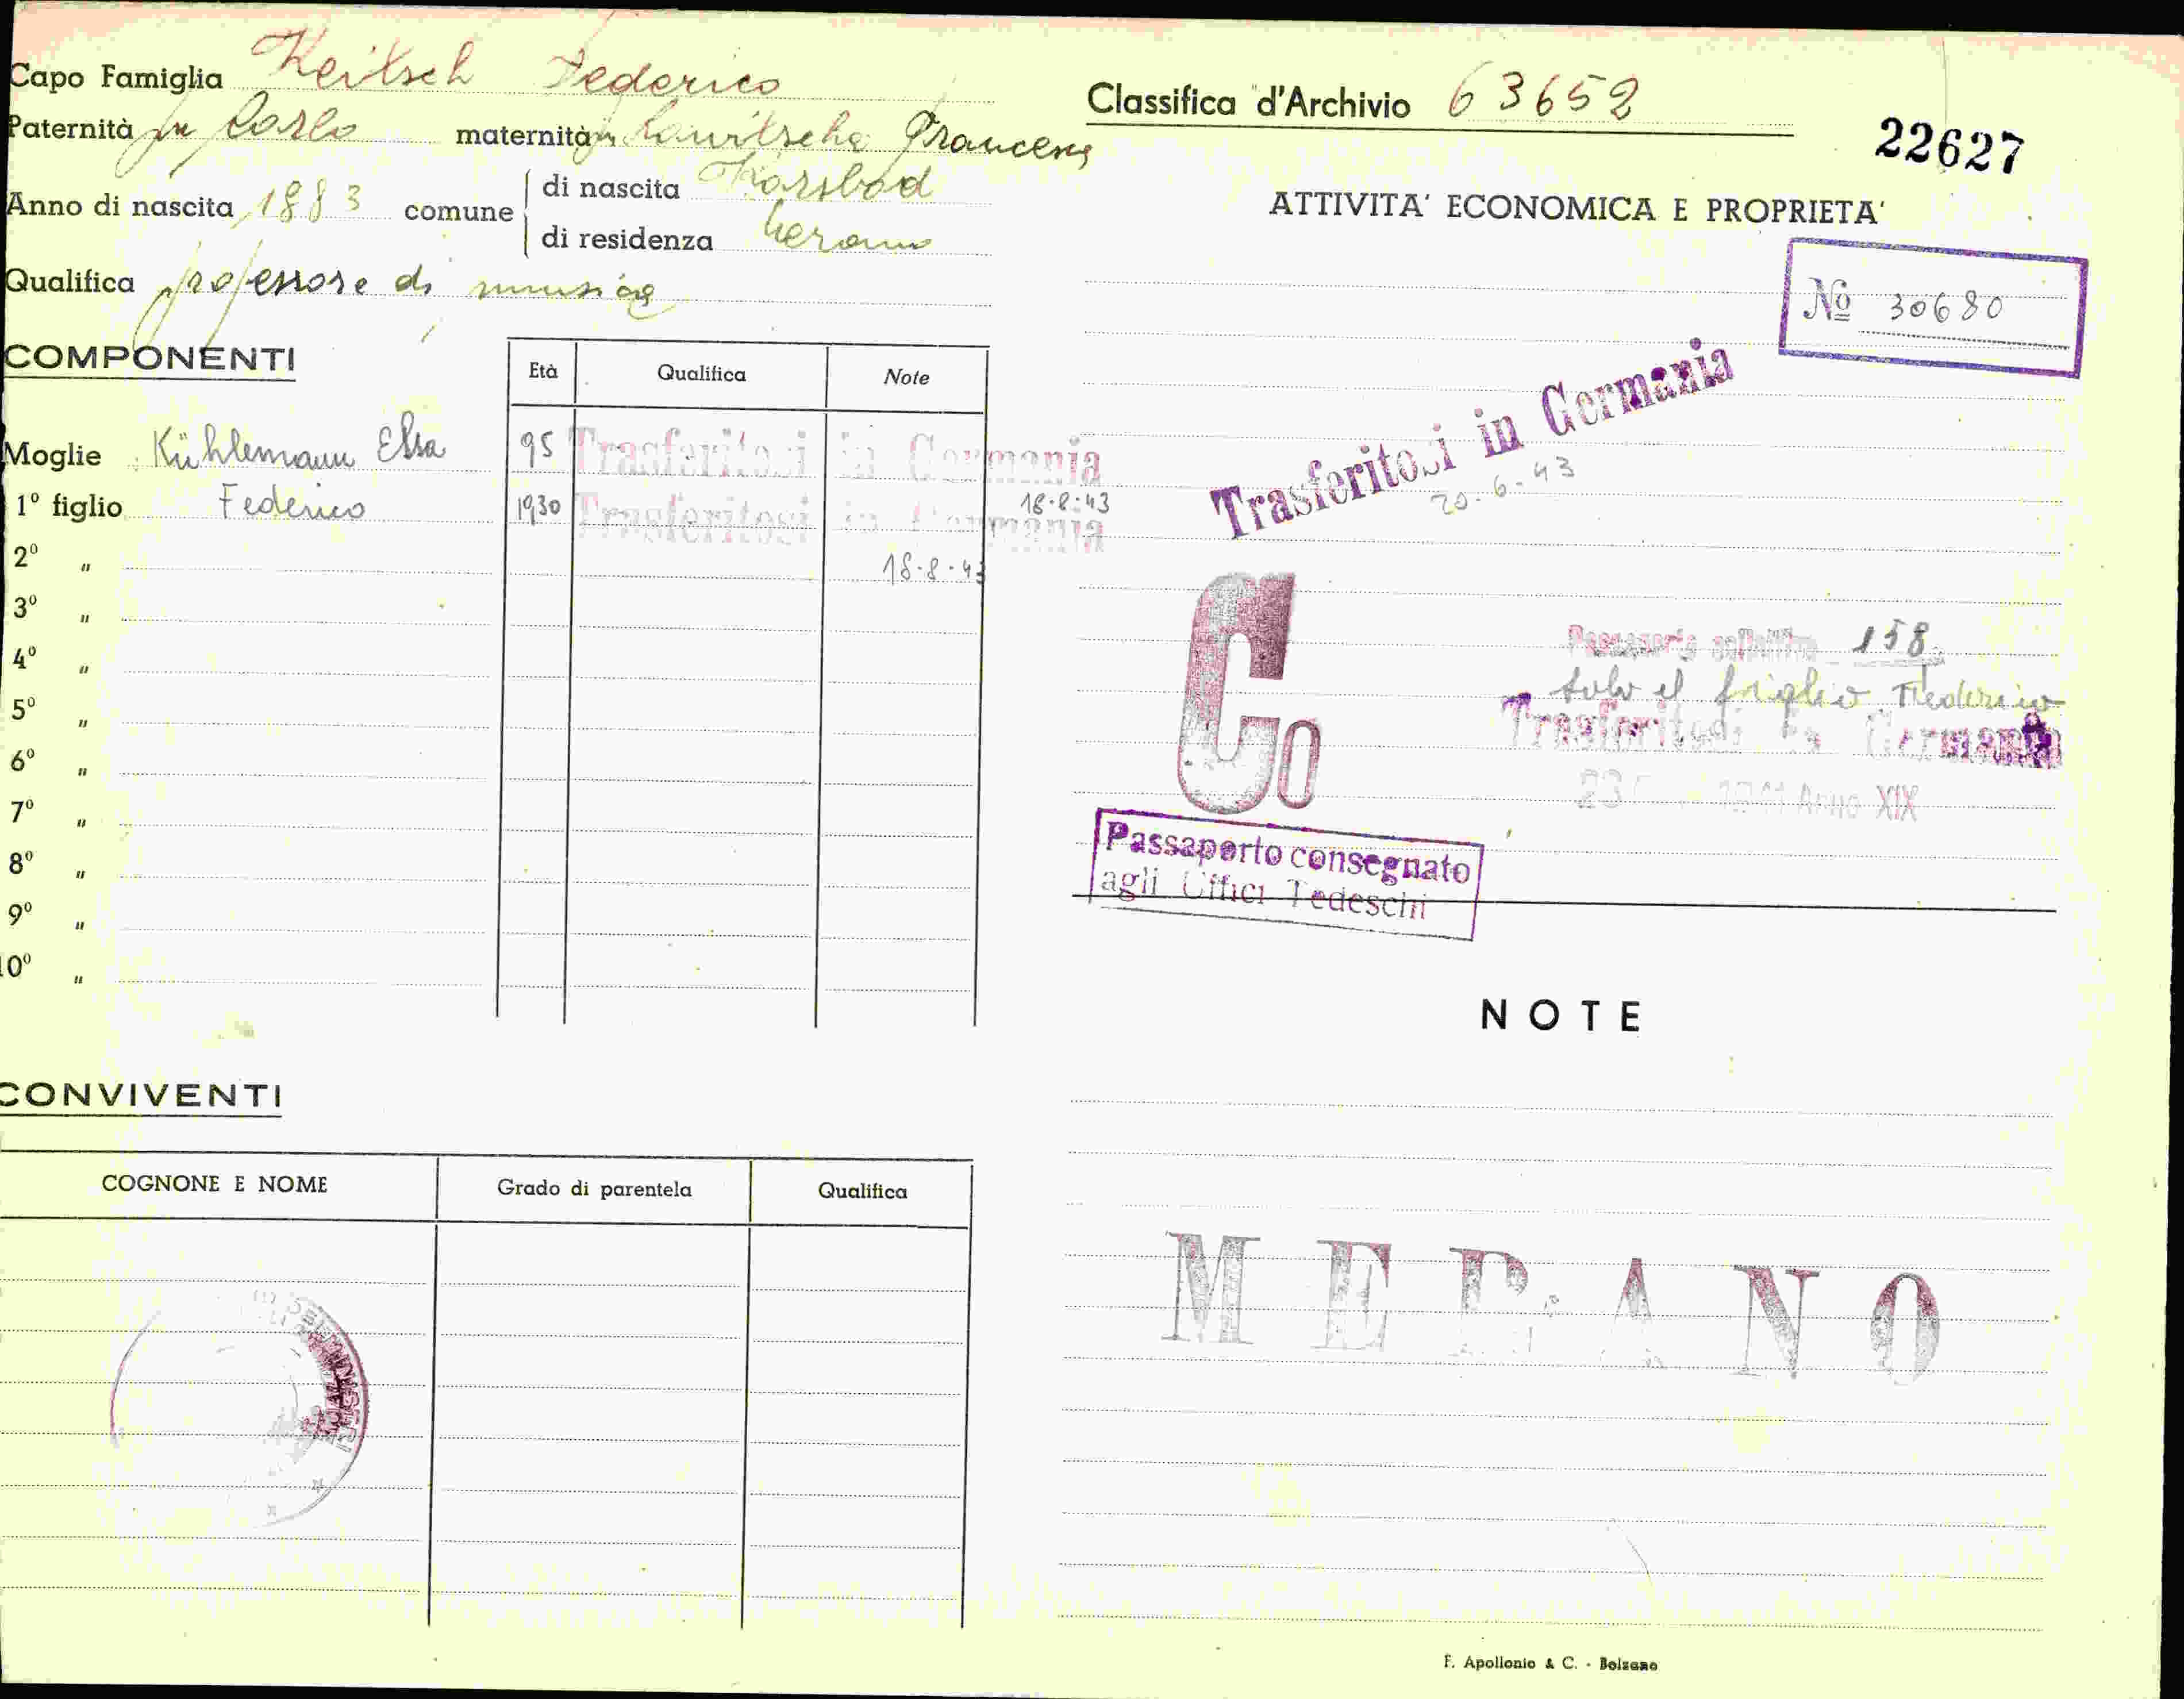 Capo Famiglia Keitsch Federico
Paternità fu Carlo maternità fu Francesca
Anno di nascita 1883 comune di nascita Karlsbad
di residenza Merano
Qualifica professore di musica
COMPONENTI
Età Qualifica Note
Moglie Kühlemann Elsa 95 Trasferitosi in Germania
18-8-43
1º figlio Federico 1930 Trasferitosi in Germania
2º " 18-8-43
3º "
4º "
5º "
6º "
7º "
8º "
9º "
10º "
CONVIVENTI
COGNONE E NOME Grado di parentela Qualifica
Classifica d'Archivio 63652
22627
ATTIVITA' ECONOMICA E PROPRIETA'
Nº 30680
Trasferitosi in Germania
20-6-43
Co
Passaporto collettivo 158
solo il figlio Federico
Trasferitosi in Germania
Anno XIX
Passaporto consegnato
agli Uffici Tedeschi
NOTE
MERANO
F. Apollonio & C. - Bolzano